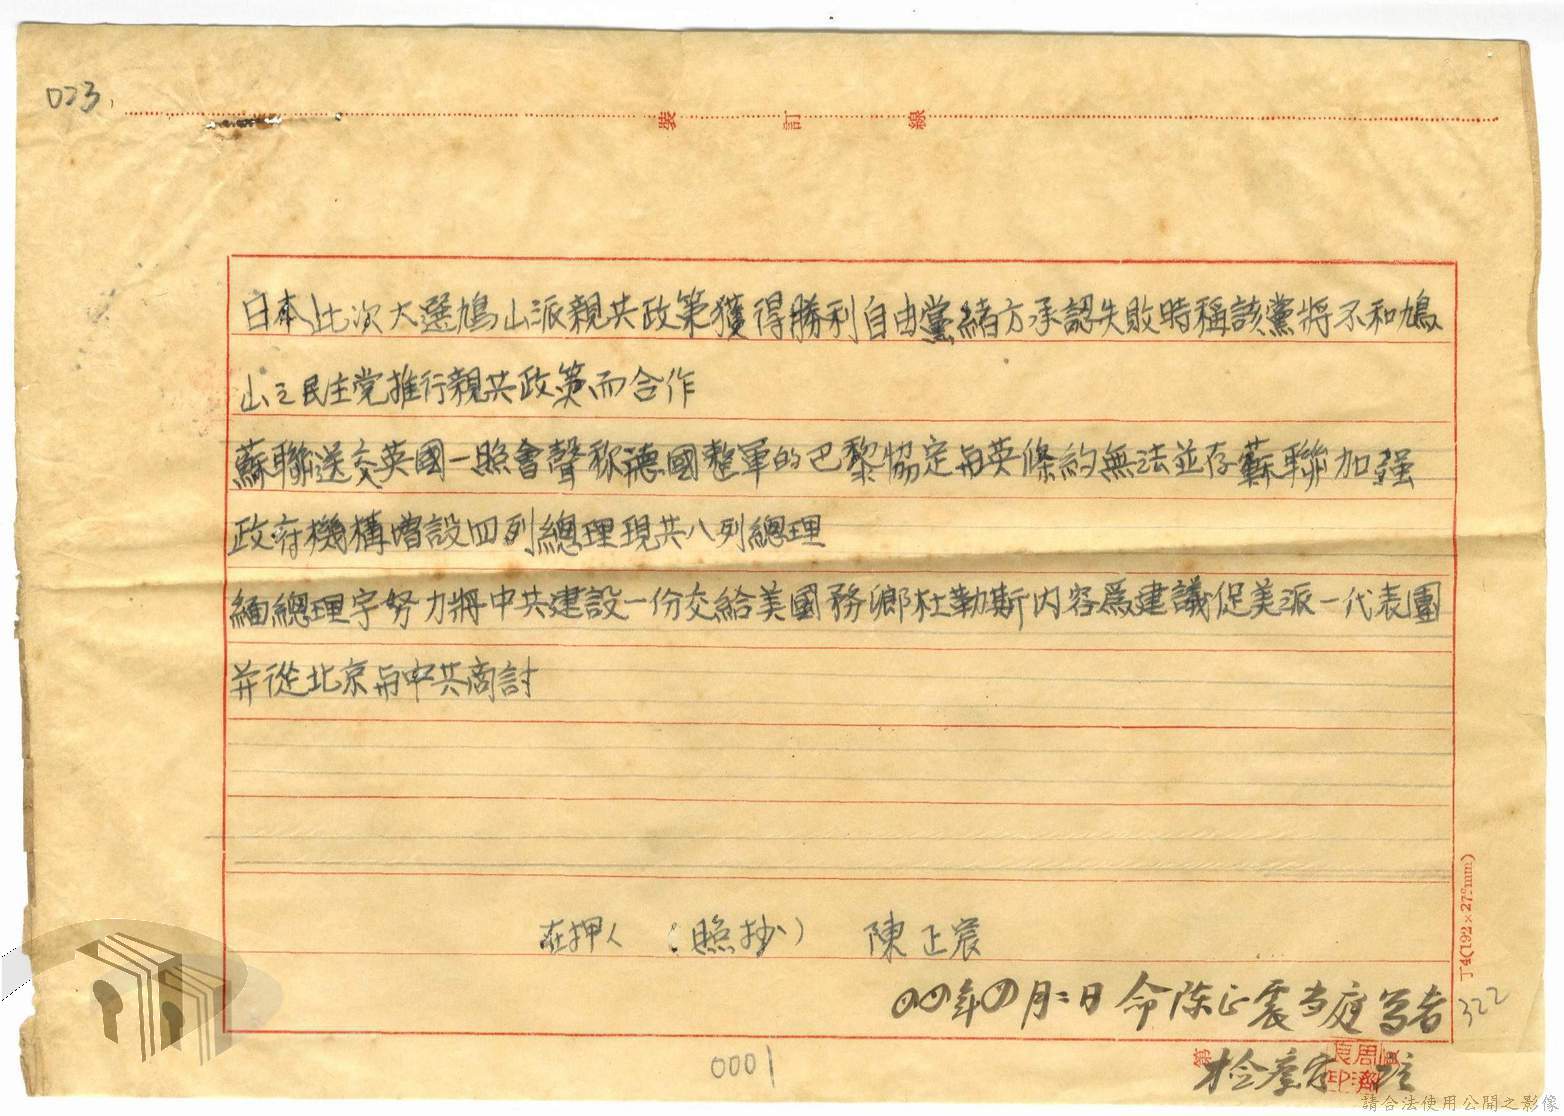 023
裝 訂 線
日本此次大選鳩山派親共政策獲得勝利自由黨緒方承認失敗時稱該黨將不和鳩
山之民主党推行親共政策而合作
蘇聯送交英國一照會聲称德國整軍的巴黎協定与英條約無法並存蘇聯加强
政府機構增設四列總理現共八列總理
緬總理宇努力將中共建設一份交給美國務鄉杜勒斯內容爲建議促美派一代表團
并從北京与中共商討
在押人 (照抄) 陳正宸
四四年四月二日命陈正震当庭写者
322
丁4(192×27?mm)
第
检察官
0001
請合法使用公開之影像